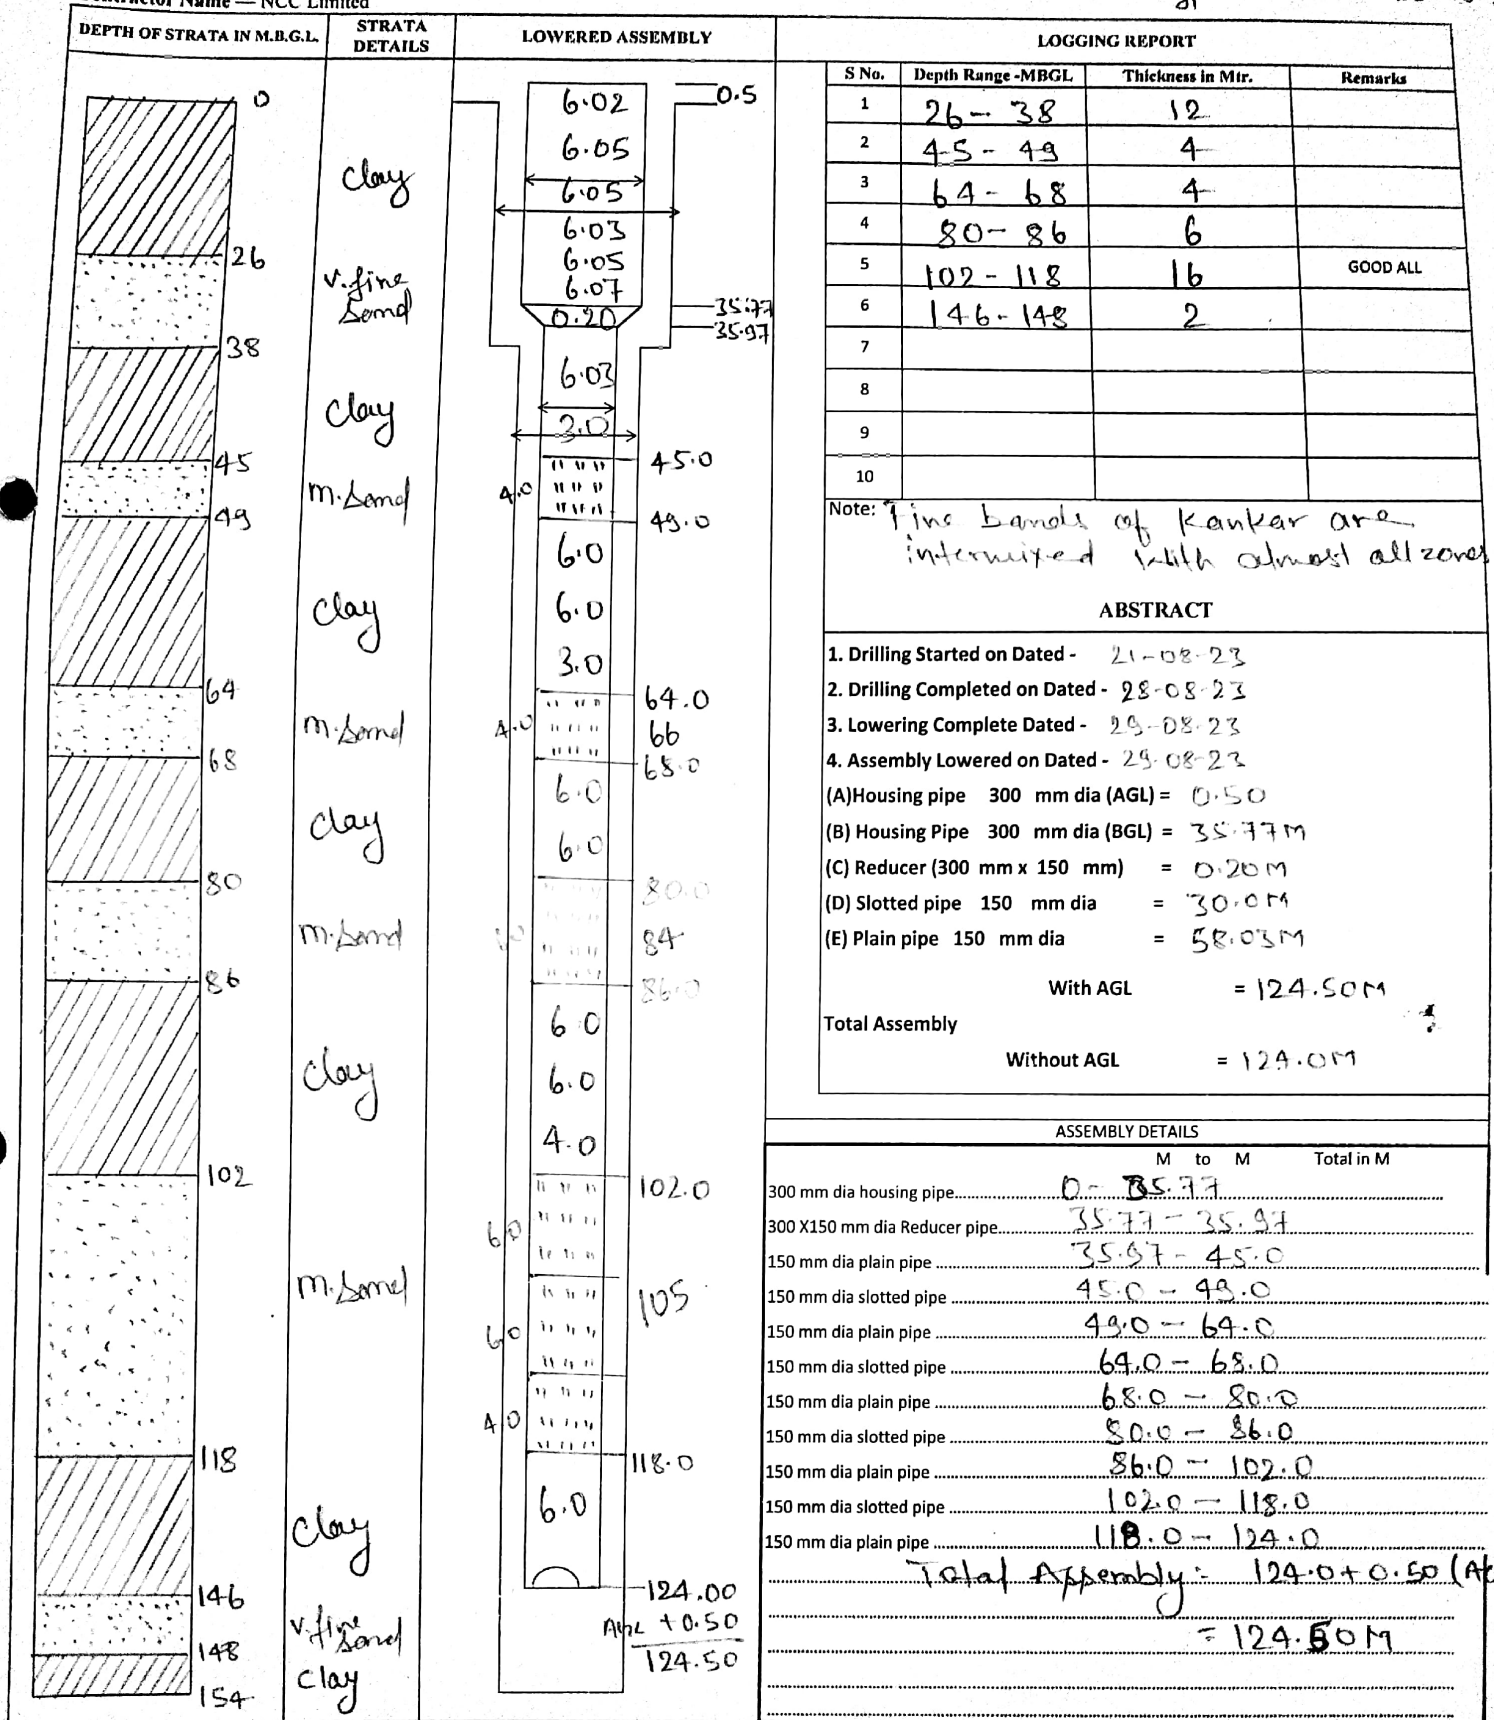 Contractor Name — NCC Limited
DEPTH OF STRATA IN M.B.G.L.
STRATA DETAILS
LOWERED ASSEMBLY
LOGGING REPORT
0
26
38
45
49
64
68
80
86
102
118
146
148
154
Clay
v.fine
Sand
Clay
m.Sand
Clay
m.Sand
Clay
m.Sand
Clay
m.Sand
Clay
v.fine
Sand
Clay
6.02
0.5
6.05
6.05
6.03
6.05
6.07
0.20
35.77
35.97
6.03
3.0
45.0
4.0
49.0
6.0
6.0
3.0
64.0
4.0
66
68.0
6.0
6.0
80.0
84
86.0
6.0
6.0
4.0
102.0
6.0
105
6.0
4.0
118.0
6.0
124.00
AGL +0.50
124.50
S No. Depth Range -MBGL Thickness in Mtr. Remarks
1 26 - 38 12
2 45 - 49 4
3 64 - 68 4
4 80 - 86 6
5 102 - 118 16 GOOD ALL
6 146 - 148 2
7
8
9
10
Note: Fine bands of Kankar are
intermixed with almost all zones
ABSTRACT
1. Drilling Started on Dated - 21-08-23
2. Drilling Completed on Dated - 28-08-23
3. Lowering Complete Dated - 29-08-23
4. Assembly Lowered on Dated - 29-08-23
(A)Housing pipe 300 mm dia (AGL) = 0.50
(B) Housing Pipe 300 mm dia (BGL) = 35.77M
(C) Reducer (300 mm x 150 mm) = 0.20M
(D) Slotted pipe 150 mm dia = 30.0M
(E) Plain pipe 150 mm dia = 58.03M
With AGL = 124.50M
Total Assembly
Without AGL = 124.0M
ASSEMBLY DETAILS
M to M Total in M
300 mm dia housing pipe 0 - 35.77
300 X150 mm dia Reducer pipe 35.77 - 35.97
150 mm dia plain pipe 35.97 - 45.0
150 mm dia slotted pipe 45.0 - 49.0
150 mm dia plain pipe 49.0 - 64.0
150 mm dia slotted pipe 64.0 - 68.0
150 mm dia plain pipe 68.0 - 80.0
150 mm dia slotted pipe 80.0 - 86.0
150 mm dia plain pipe 86.0 - 102.0
150 mm dia slotted pipe 102.0 - 118.0
150 mm dia plain pipe 118.0 - 124.0
Total Assembly = 124.0 + 0.50
= 124.50M